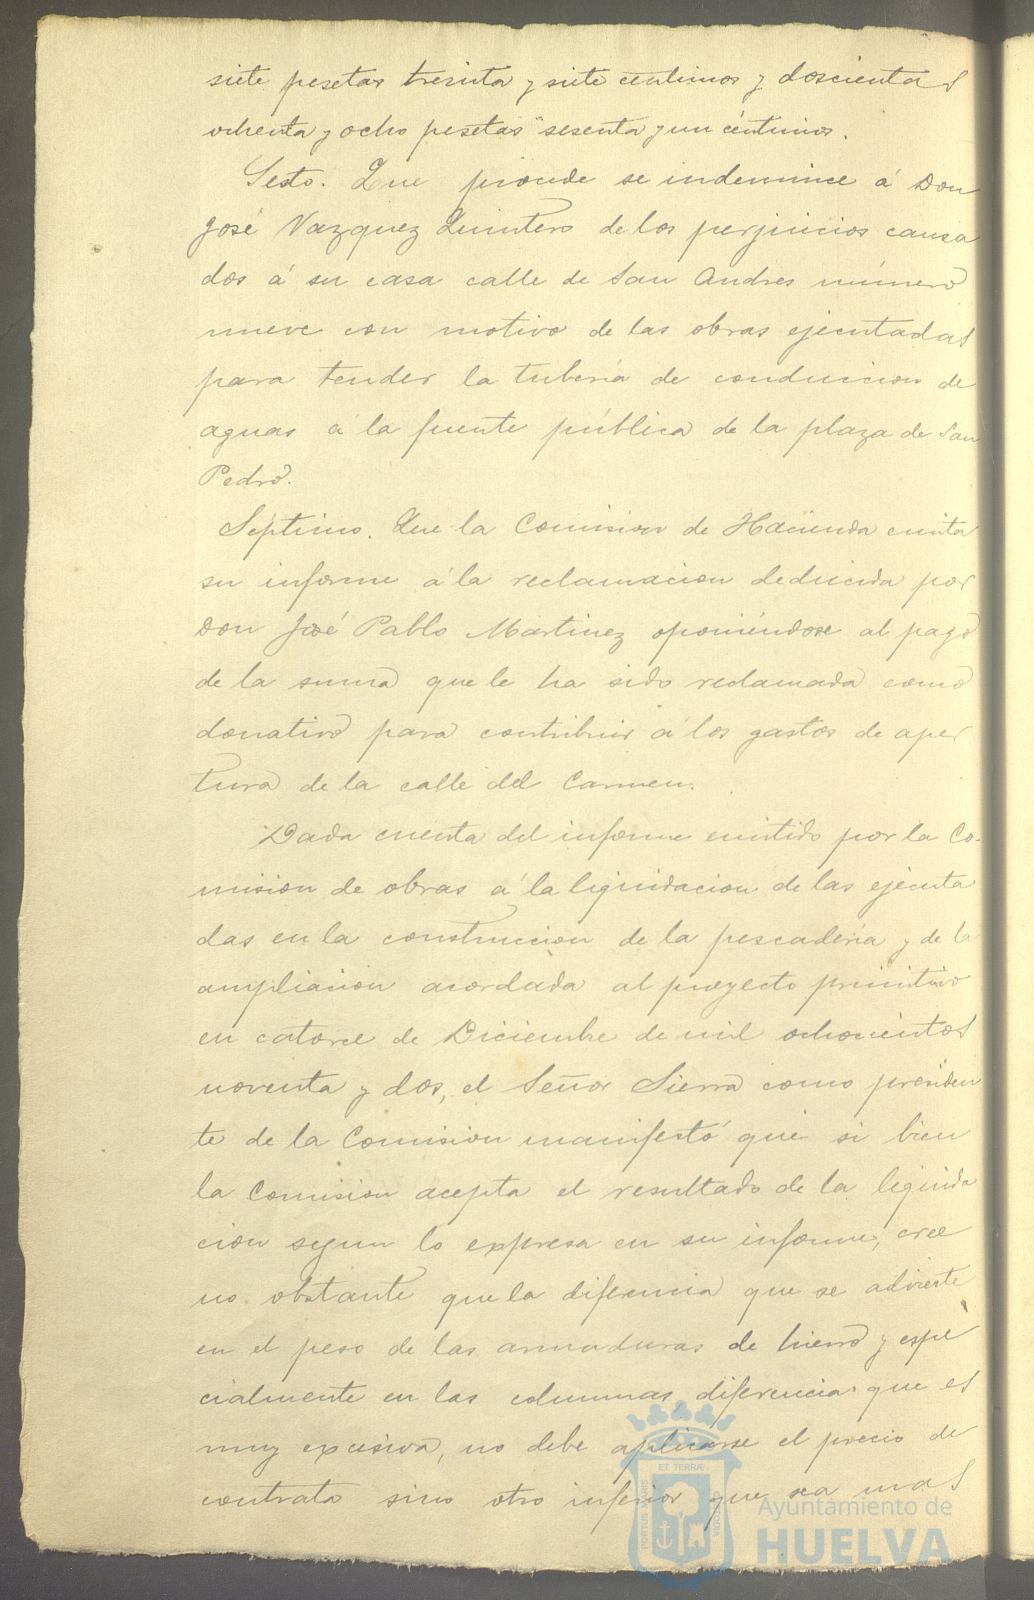 siete pesetas treinta y siete centimos y doscientas
ochenta y ocho pesetas sesenta y un céntimos.
Sesto. Que procede se indemnice á Don
José Vazquez Quintero de los perjuicios causa
dos á su casa calle de San Andres número
nueve con motivo de las obras ejecutadas
para tender la tuberia de conduccion de
aguas á la fuente pública de la plaza de San
Pedro.
Septimo. Que la Comision de Hacienda emita
su informe á la reclamacion deducida por
Don José Pablo Martinez oponiéndose al pago
de la suma que le ha sido reclamada como
donativo para contribuir á los gastos de aper
tura de la calle del Carmen.
Dada cuenta del informe emitido por la Co-
mision de obras á la liquidacion de las ejecuta
das en la construccion de la pescaderia y de la
ampliacion acordada al proyecto primitivo
en catorce de Diciembre de mil ochocientos
noventa y dos, el Señor Sierra como presiden
te de la Comision manifestó que si bien
la Comision acepta el resultado de la liquida
cion segun lo expresa en su informe, cree
no obstante que la diferencia que se advierte
en el peso de las armaduras de hierro y espe
cialmente en las columnas, diferencia que es
muy excesiva, no debe aplicarse el precio de
contrata sino otro inferior que sea mas
PORTUS MARIS ET TERRÆ CUSTODIA
Ayuntamiento de
HUELVA